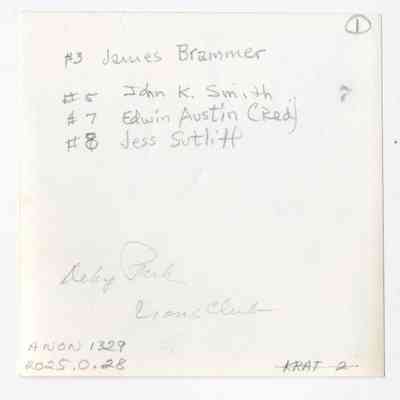 ①
#3 James Brammer
#5 John K. Smith ?
#7 Edwin Austin (Red)
#8 Jess Sutliff
Park
Lions Club
ANON 1329
2025.0.28
KRAT 2